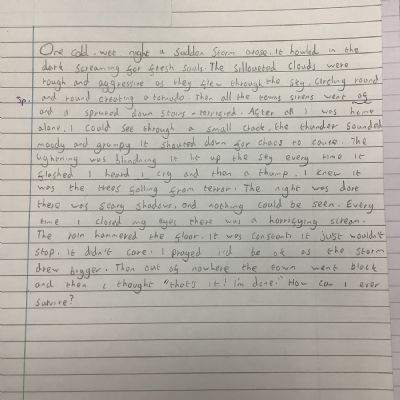 One cold, wet night a sudden storm arose. It howled in the
dark screaming for fresh souls. The silloueted clouds were
rough and aggressive as they flew through the sky. Circling round
and round creating a tornado. Then all the towns sirens went of
Sp.
and I sprinted down stairs - terrified. After all I was home
alone. I could see through a small crack, the thunder sounded
moody and grumpy it shouted down for chaos to cause. The
lightning was blinding it lit up the sky every time it
flashed I heard I cry and then a thump. I knew it
was the trees falling from terror. The night was dare
there was scary shadows, and nothing could be seen. Every
time I closed my eyes there was a horrifying scream.
The rain hammered the floor. It was constant it just wouldn't
stop. It didn't care. I prayed i'd be ok as the storm
drew bigger. Then out of nowhere the town went black
and then I thought "that's it! I'm done." How can I ever
survive?